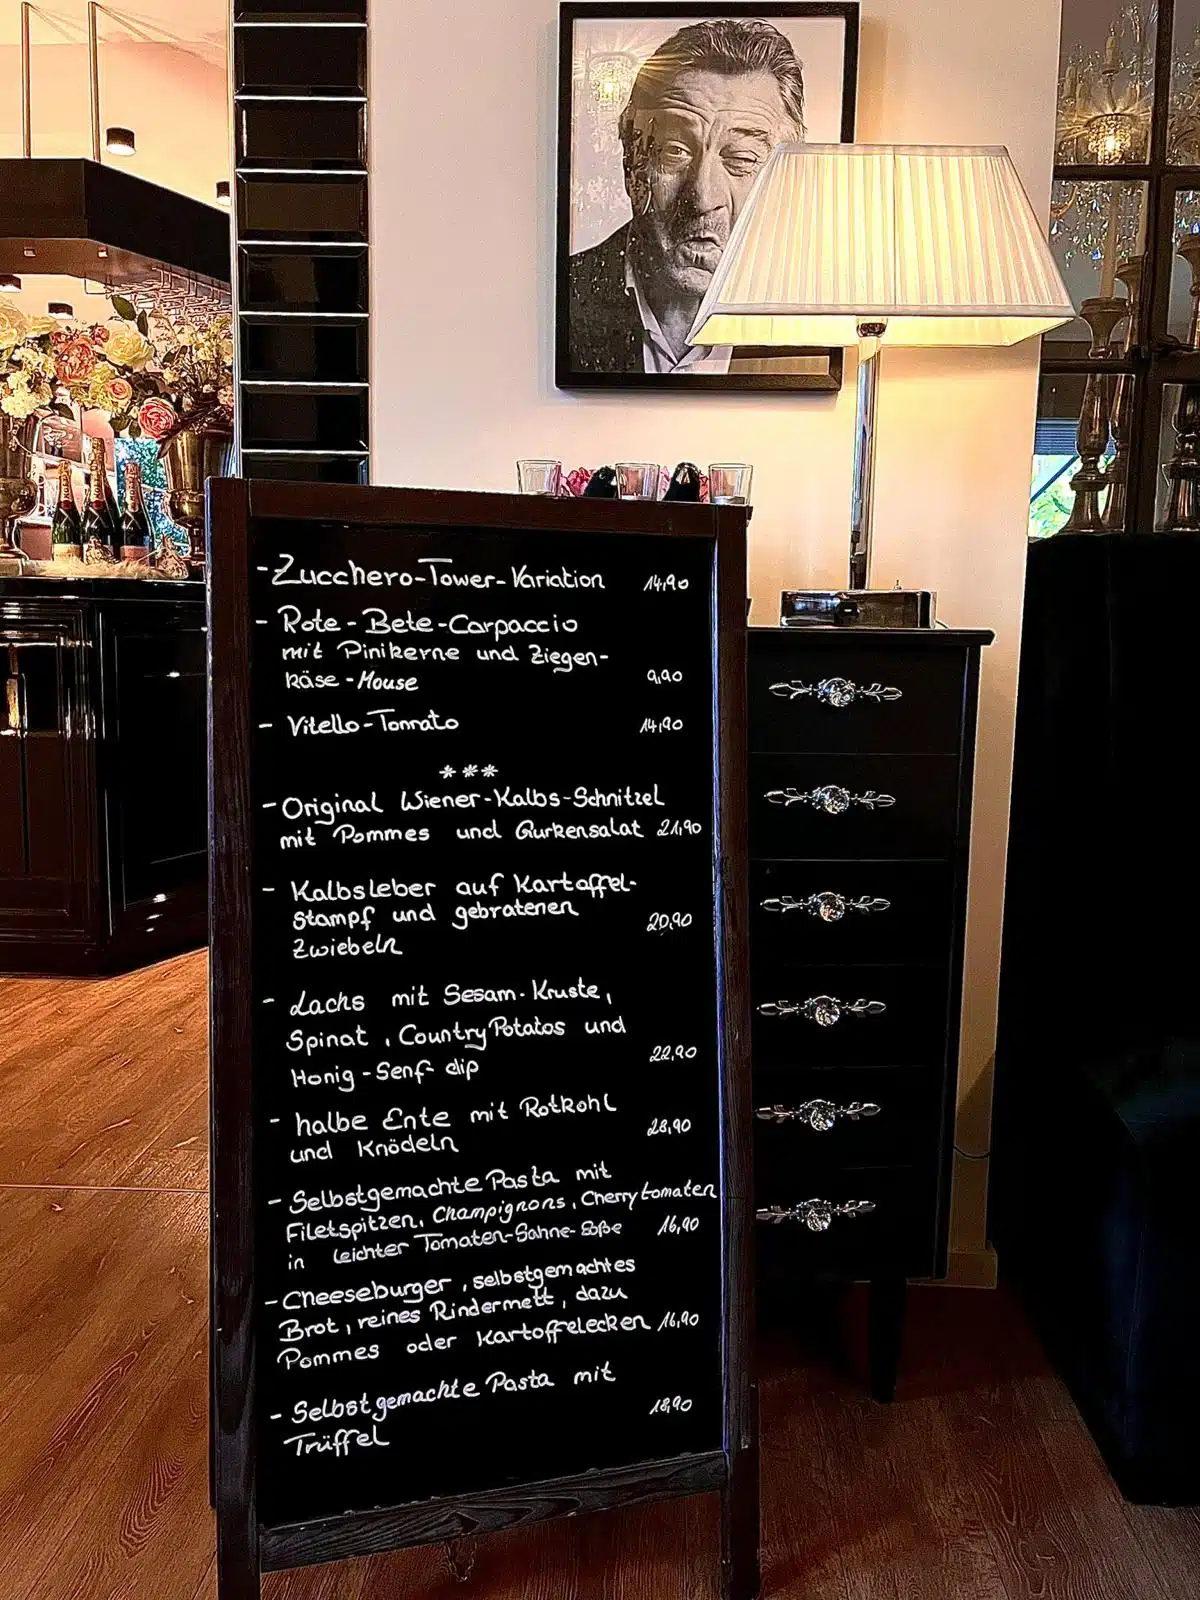 - Zucchero-Tower-Variation 14,90
- Rote-Bete-Carpaccio
mit Pinikerne und Ziegen-
käse-Mouse 9,90
- Vitello-Tonnato 14,90
***
- Original Wiener-Kalbs-Schnitzel
mit Pommes und Gurkensalat 21,90
- Kalbsleber auf Kartoffel-
stampf und gebratenen
Zwiebeln 20,90
- Lachs mit Sesam-Kruste,
Spinat, Country Potatos und
Honig-Senf-dip 22,90
- halbe Ente mit Rotkohl
und Knödeln 28,90
- Selbstgemachte Pasta mit
Filetspitzen, Champignons, Cherrytomaten
in leichter Tomaten-Sahne-Soße 16,90
- Cheeseburger, selbstgemachtes
Brot, reines Rindermett, dazu
Pommes oder Kartoffelecken 16,90
- Selbstgemachte Pasta mit
Trüffel 18,90